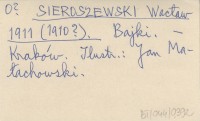 O? SIEROSZEWSKI Wacław
1911 (1910?). Bajki. —
Kraków. Ilustr.: Jan Ma-
łachowski.